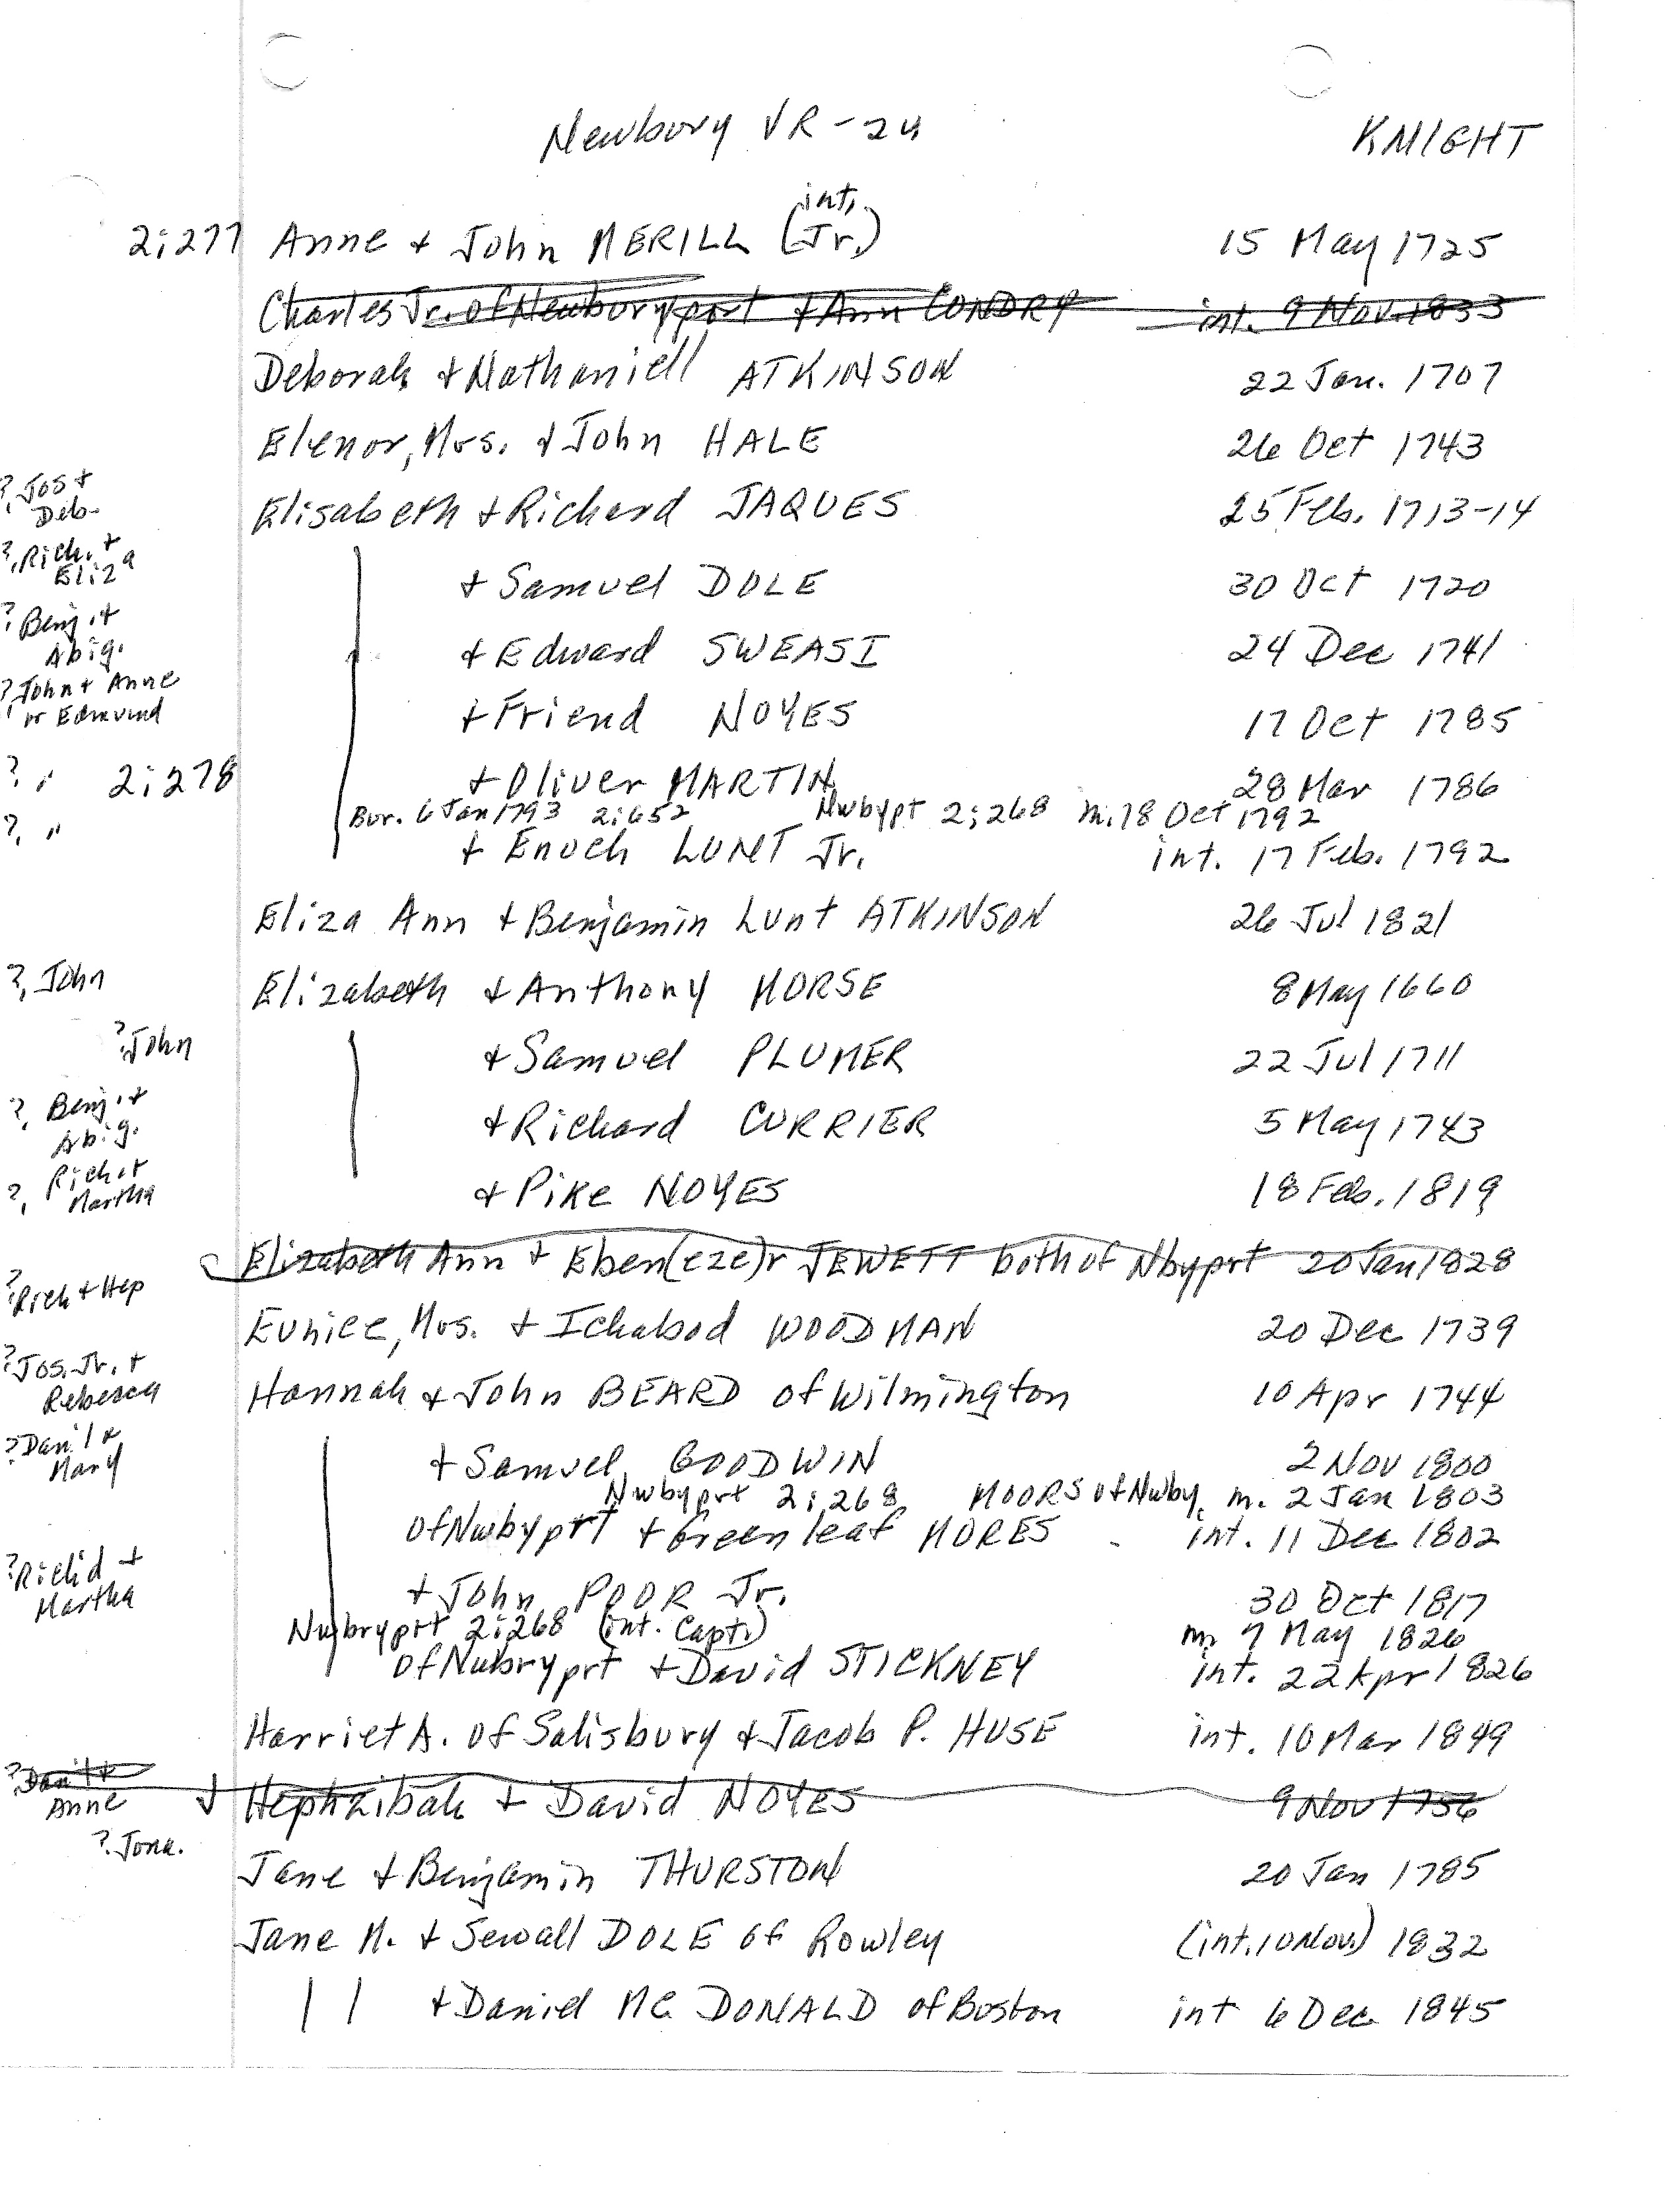 Newbury VR-24 KNIGHT
int.
2:277 Anne + John MERILL (Jr.) 15 May 1725
Charles Jr. of Newburyport + Ann CONDRY int. 9 Nov. 1833
Deborah + Nathaniell ATKINSON 22 Jan. 1707
Elenor, Mrs. + John HALE 26 Oct 1743
? Jos +
Deb.
Elisabeth + Richard JAQUES 25 Feb. 1713-14
?, Rich. +
Eliza
+ Samuel DOLE 30 Oct 1720
? Benj. +
Abig.
+ Edward SWEASI 24 Dec 1741
? John + Anne
or Edmund
+ Friend NOYES 17 Oct 1785
? " 2:278 + Oliver MARTIN 28 Mar 1786
Bur. 6 Jan 1793 2:652 Nwbypt 2:268 m. 18 Oct 1792
?, " + Enoch LUNT Jr. int. 17 Feb. 1792
Eliza Ann + Benjamin Lunt ATKINSON 26 Jul 1821
?, John Elizabeth + Anthony MORSE 8 May 1660
? John + Samuel PLUMER 22 Jul 1711
?, Benj. +
Abig.
+ Richard CURRIER 5 May 1743
?, Rich. +
Martha
+ Pike NOYES 18 Feb. 1819
Elizabeth Ann + Eben(eze)r JEWETT both of Nbyprt 20 Jan 1828
? Rich + Hep
Eunice, Mrs. + Ichabod WOODMAN 20 Dec 1739
? Jos. Jr. +
Rebecca
Hannah + John BEARD of Wilmington 10 Apr 1744
? Dan'l +
Mary
+ Samuel GOODWIN 2 Nov 1800
Nwbyprt 2:268 MOORS of Nwby. m. 2 Jan 1803
of Nwbyprt + Greenleaf MORES int. 11 Dec 1802
? Rich'd +
Martha
+ John POOR Jr. 30 Oct 1817
Nwbryprt 2:268 (int. Capt.) m 7 May 1826
of Nwbryprt + David STICKNEY int. 22 Apr 1826
Harriet A. of Salisbury + Jacob P. HUSE int. 10 Mar 1849
? Dan'l +
Anne
Hephzibah + David NOYES 9 Nov 1756
? Jona.
Jane + Benjamin THURSTON 20 Jan 1785
Jane M. + Sewall DOLE of Rowley (int. 10 Nov.) 1832
| | + Daniel Mc DONALD of Boston int 6 Dec. 1845